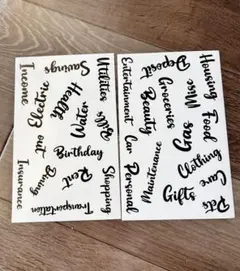 Income
Savings
Utilities
Electric
Health
Water
Gifts
out
Birthday
Dining
Rent
Shopping
Insurance
Transportation
Entertainment
Deposit
Housing
Misc
Groceries
Beauty
Car
Gas
Food
Personal
Maintenance
Clothing
Care
Gifts
Pets